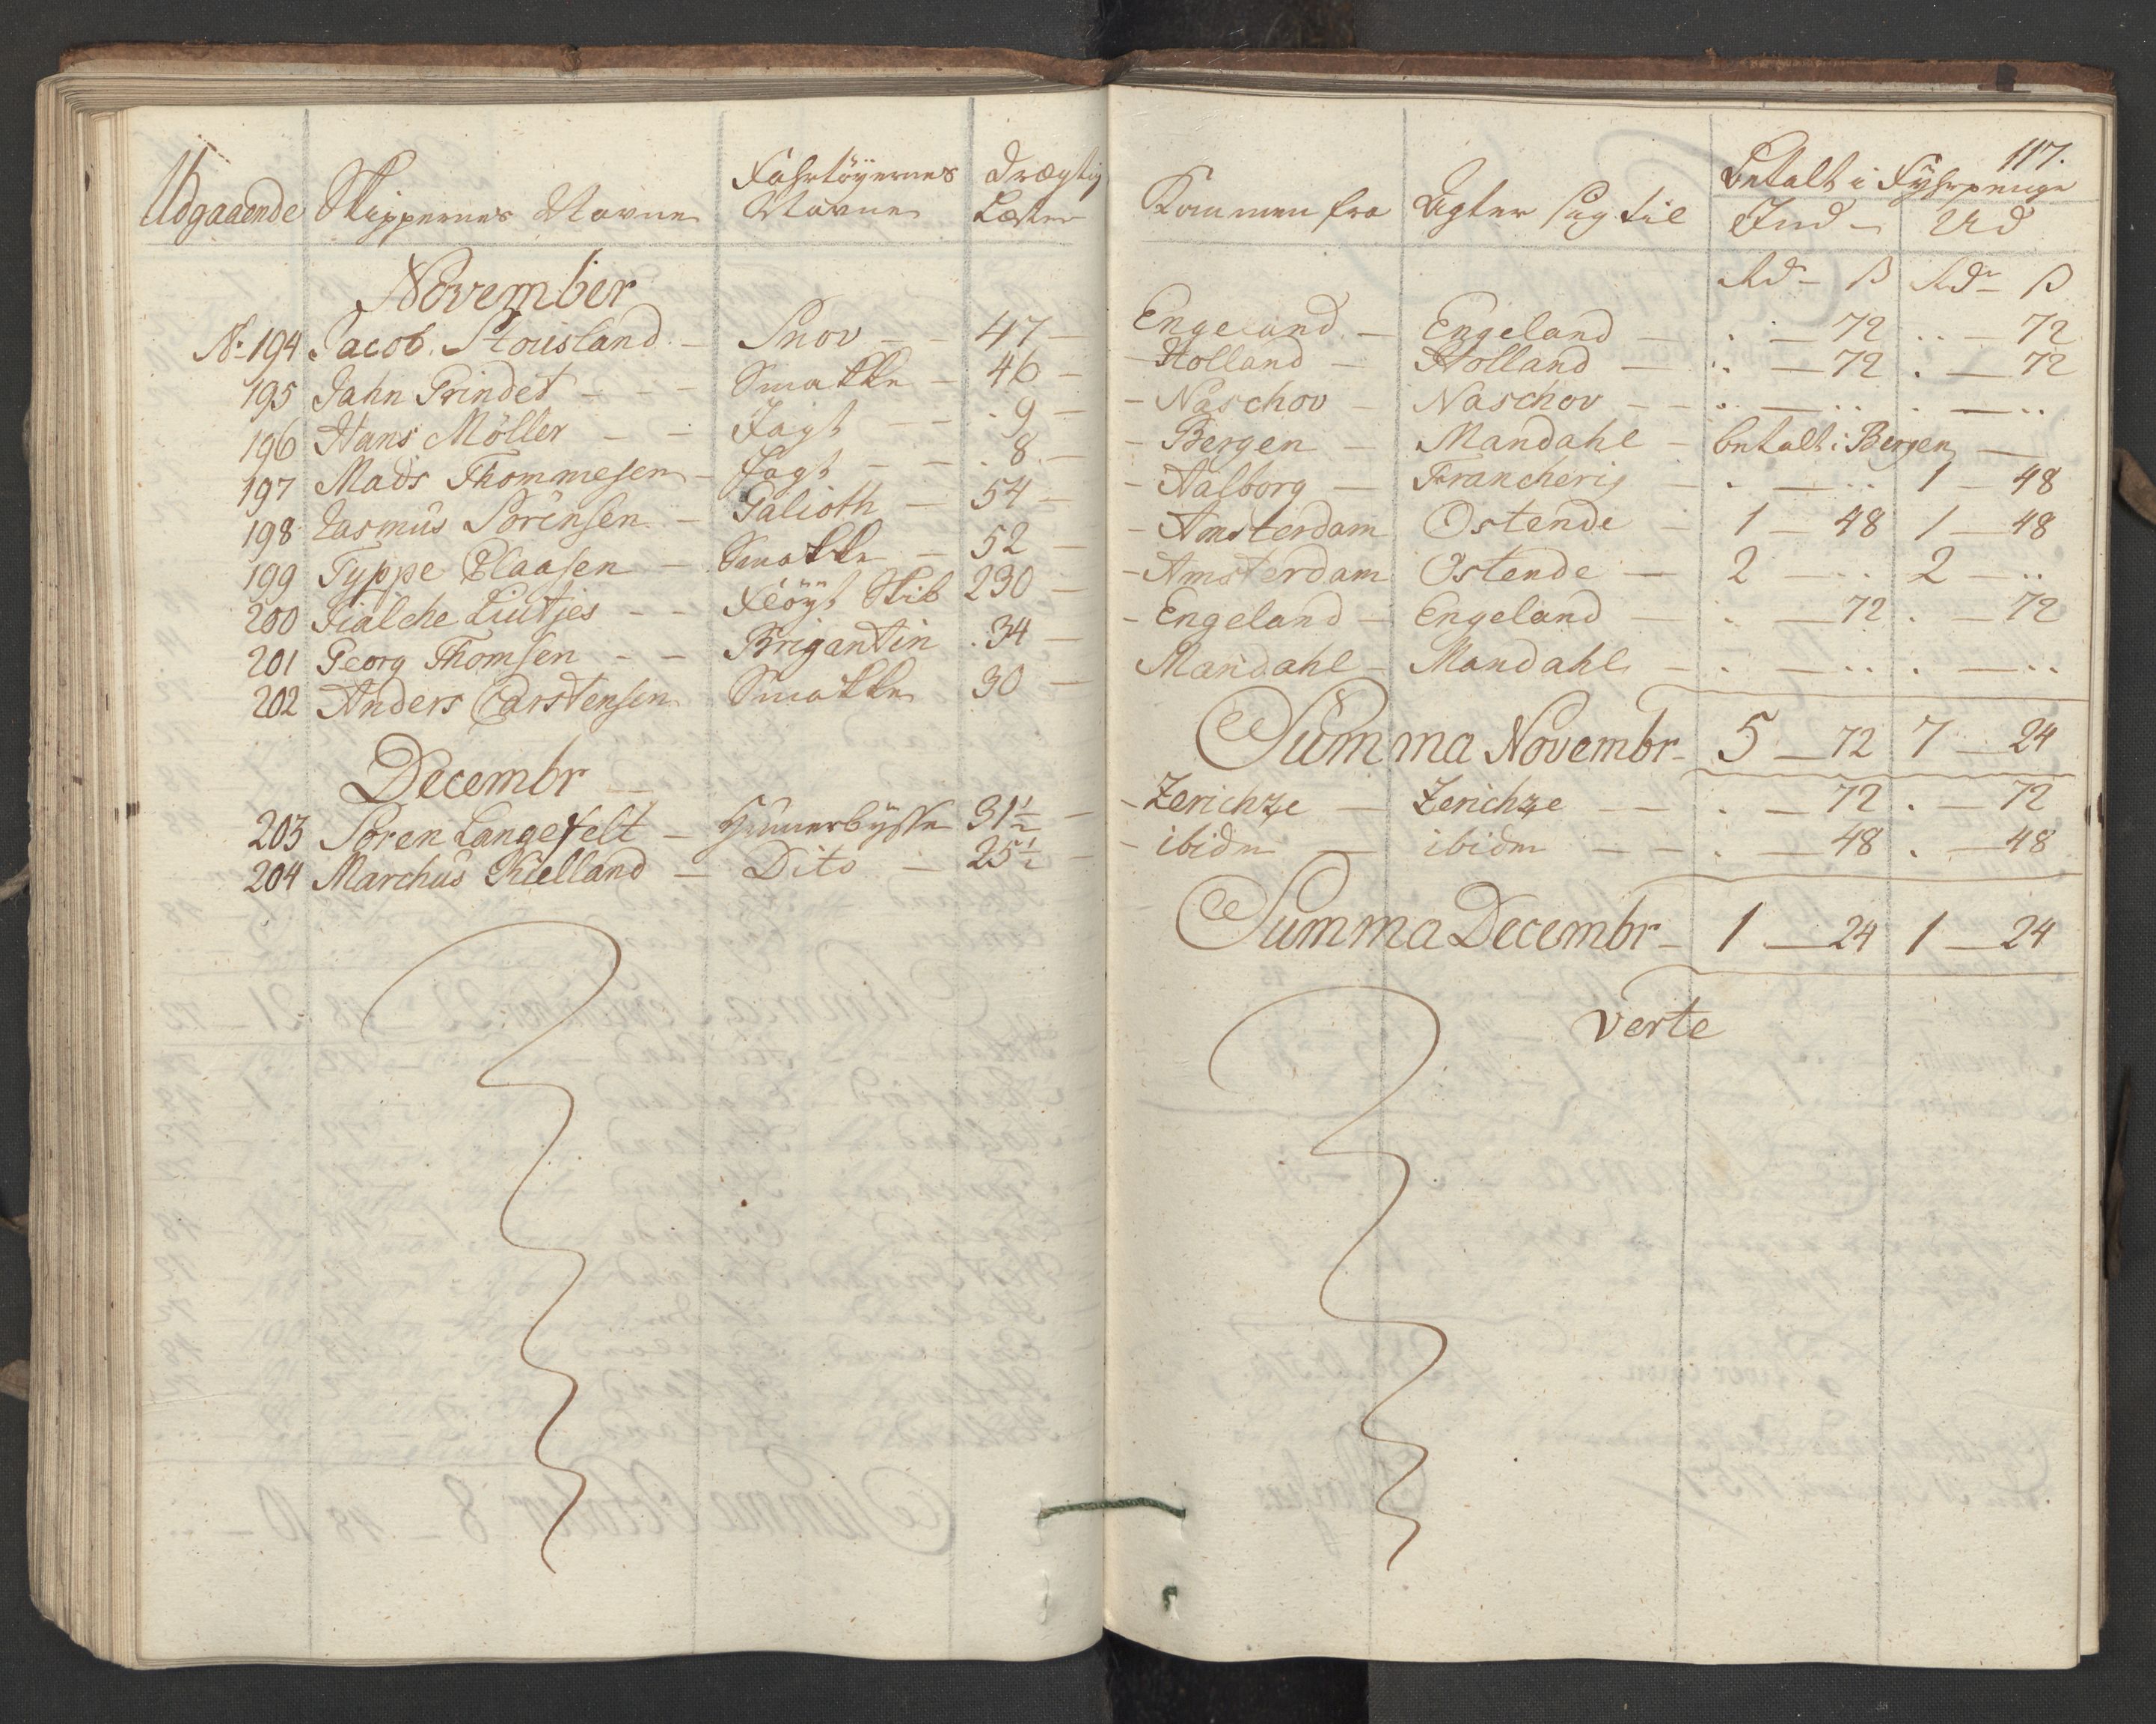 117.
Udgaaende Skippernes Navne Fahrtöyernes Navne Drægtig Læster Kommen fra Agter sig til Betalt i Fyhrpenge Ind - Ud
Rd - ß Rd - ß
November
No 194 Jacob Stousland - Snov - - 47 - Engeland - Engeland - . . - 72 . . - 72
195 Jahn Prindet - - - Smakke - 46 - - Holland - Holland - . . - 72 . - 72
196 Hans Möller - - Jagt - - . 9 - - Naschov - Naschov - - . . - . . . - . .
197 Mads Thommesen - Jagt - - . 8 - - Bergen - Mandahl - betalt i Bergen -
198 Rasmus Sörensen - Galioth - 54 - - Aalborg - Francherig - . - . . 1 - 48
199 Typpe Claasen - Smakke - 52 - - Amsterdam Ostende - 1 - 48 1 - 48
200 Fialche Liutjes - - Flöyt Skib 230 - - Amsterdam Ostende - 2 - . . 2 - . .
201 Georg Thomsen - - Brigantin . 34 - - Engeland - Engeland - . - 72 . - 72
202 Anders Carstensen Smakke 30 - Mandahl - Mandahl - . - . . . - . .
Summa Novembr - 5 - 72 7 - 24
Decembr
203 Sören Langefelt - Hummerbysse 31½ - - Zerichze - Zerichze - - . - 72 . - 72
204 Marchus Kielland - Dito - 25½ - - ibidm - ibidm - - . - 48 . - 48
Summa Decembr - 1 - 24 1 - 24
Verte